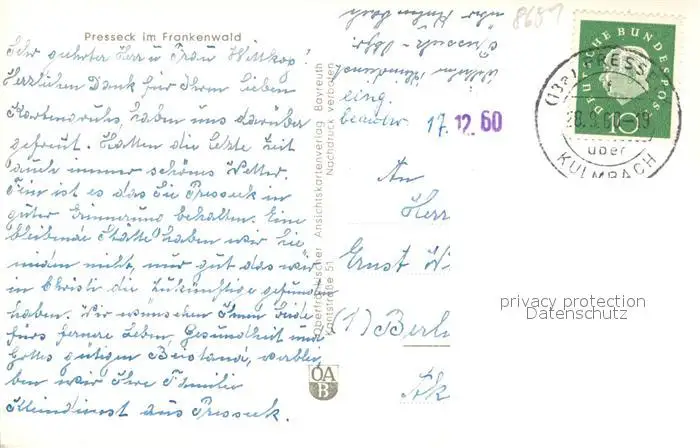 Presseck im Frankenwald
Sehr geehrter Herr u Frau Wittkop!
Herzlichen Dank für Ihren lieben
Kartengruß, haben uns darüber
gefreut. Hatten die letzte Zeit
auch immer schönes Wetter.
ist es das Sie Presseck in
guter Erinnerung behalten. Eine
bleibende Stätte haben wir hie
nieden nicht, nur gut das wir
in Christi die zukünftige gefunden
haben. Wir wünschen Ihnen beide
fürs fernere Leben, Gesundheit und
Gottes gütigen Beistand, verblei
ben wir Ihre Familie
Kleindienst aus Presseck.
Oberfränkischer Ansichtskartenverlag Bayreuth
Kantstraße 51 Nachdruck verboten
OA
B
eing.
beantw. 17.12.60
8687
DEUTSCHE BUNDESPOST
10
(13a) PRESSE
28.9.6 -19
über
KULMBACH
An
Herr
Ernst Wi
(1) Berl
privacy protection
Datenschutz